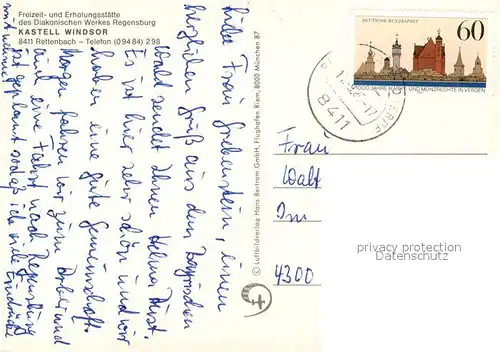 Freizeit- und Erholungsstätte
des Diakonischen Werkes Regensburg
KASTELL WINDSOR
8411 Rettenbach – Telefon (09484) 298
Liebe Frau Grebenstein, einen
herzlichen Gruß aus dem Bayrischen
Wald sendet Ihnen Helma
Es ist hier sehr schön und wir
haben eine gute Gemeinschaft.
Morgen fahren wir zum und
auch eine Fahrt nach Regensburg
ist geplant sodaß ich viele Eindrücke
mit
© Luftbildverlag Hans Bertram GmbH, Flughafen Riem, 8000 München 87
DEUTSCHE BUNDESPOST
60
1000 JAHRE MARKT- UND MÜNZRECHTE IN VERDEN
8411
Frau
Walt
Im
4300
privacy protection
Datenschutz